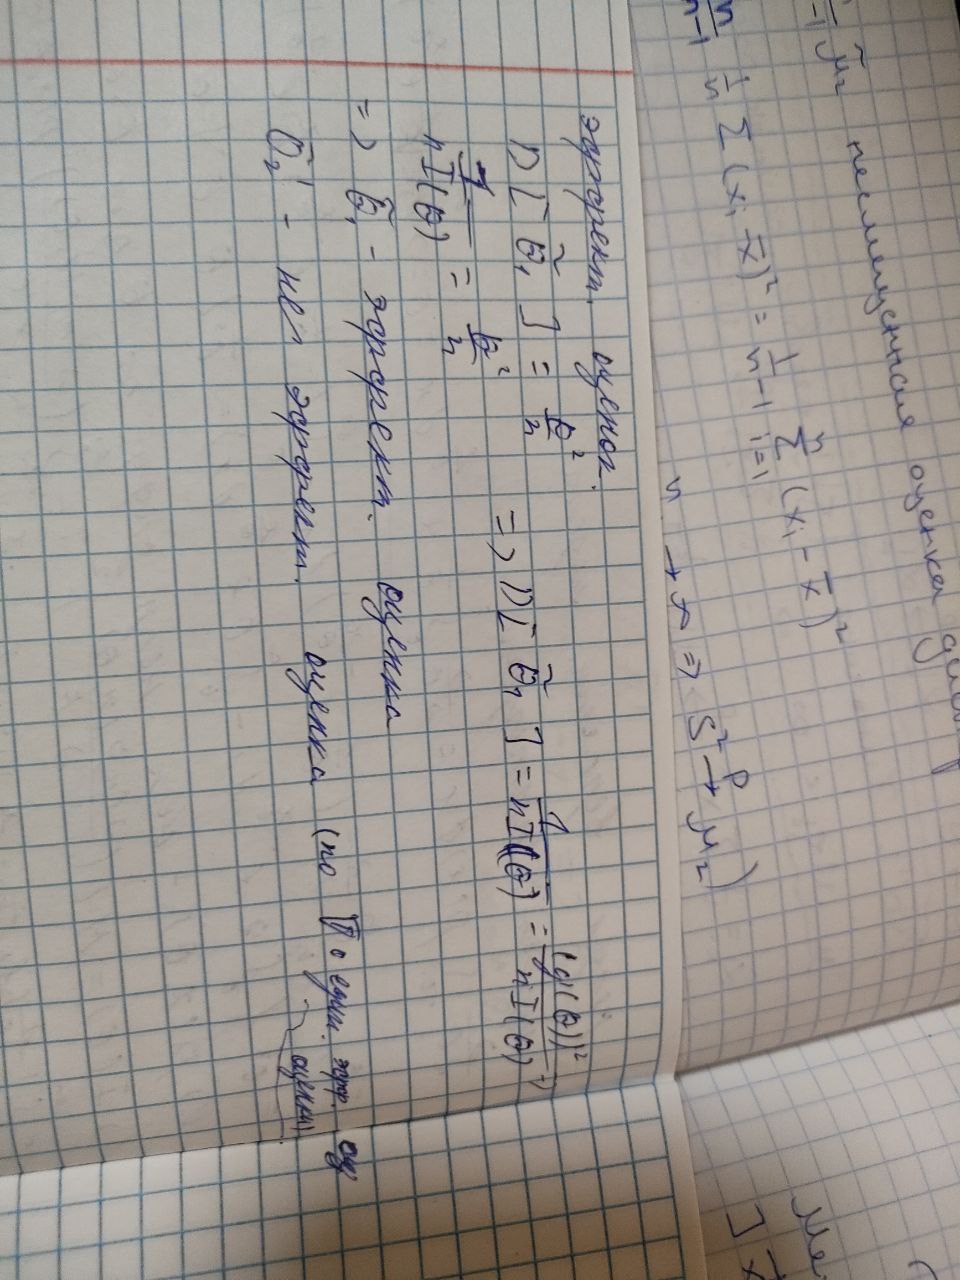 μ̃₂ несмещенная оценка
n/n-1 · 1/n Σ (xᵢ - x̄)² = 1/n-1 Σⁿᵢ₌₁ (xᵢ - x̄)²
n → ∞ => S² →ᵖ μ₂)
эффект. оценок.
D[θ̃₁] = θ²/n => D[θ̃₁] = 1/nI(θ) = (g'(θ))²/nI(θ) =>
1/nI(θ) = θ²/n
=> θ̃₁ - эффект. оценка
θ̃₂' - не эффект. оценка (по Т о един. эфф. оц
оценки)
Ме